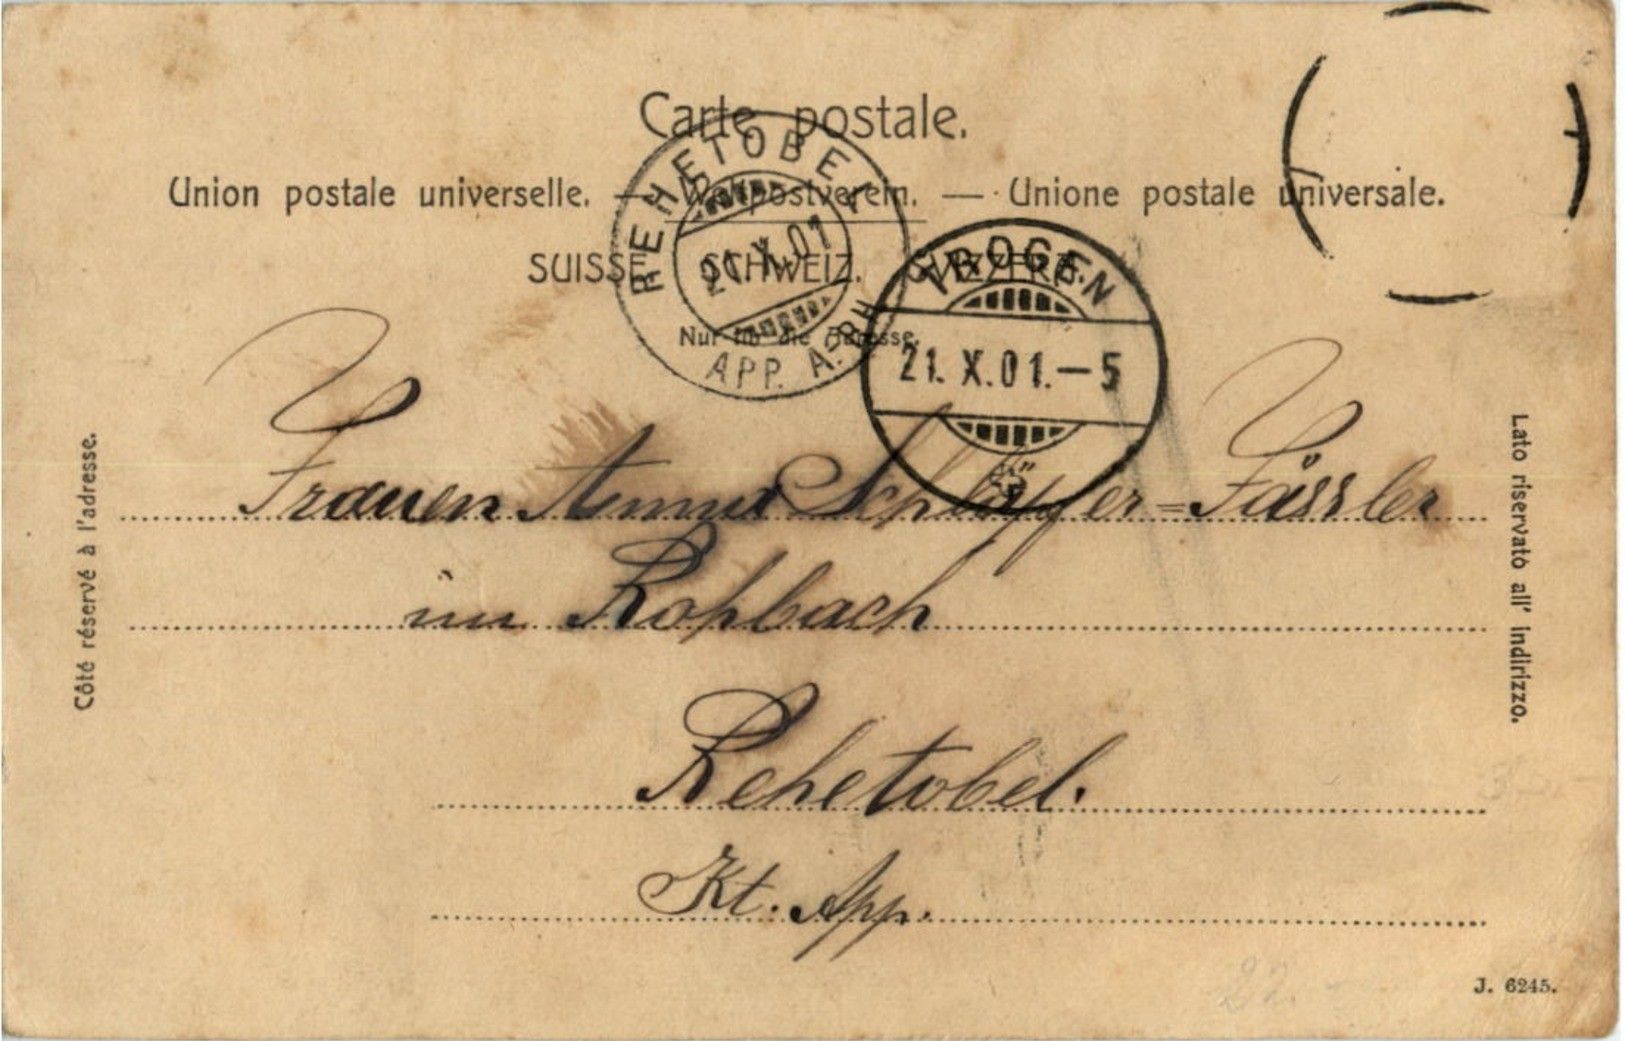 Carte postale.
Union postale universelle. — Weltpostverein. — Unione postale universale.
SUISSE. SCHWEIZ. SVIZZERA.
Nur für die Adresse.
REHETOBEL
21.X.01
APP. A. RH.
TROGEN
21. X. 01. — 5
Côté réservé à l'adresse.
Lato riservato all' indirizzo.
Frauen Anna Schläpfer=Fässler
im Rohbach
Rehetobel.
Kt. App.
J. 6245.
22.